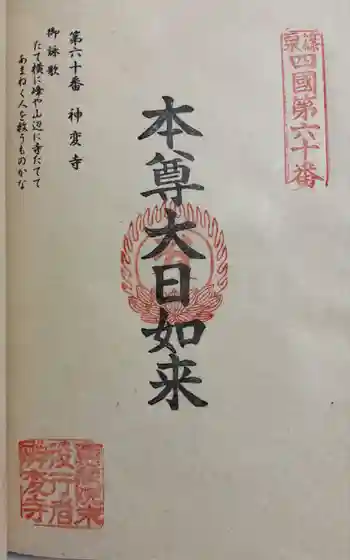 篠栗
四國第六十番
本尊大日如来
第六十番 神変寺
御詠歌
たて横に峰や山辺に寺たてて
あまねく人を救うものかな
神変寺